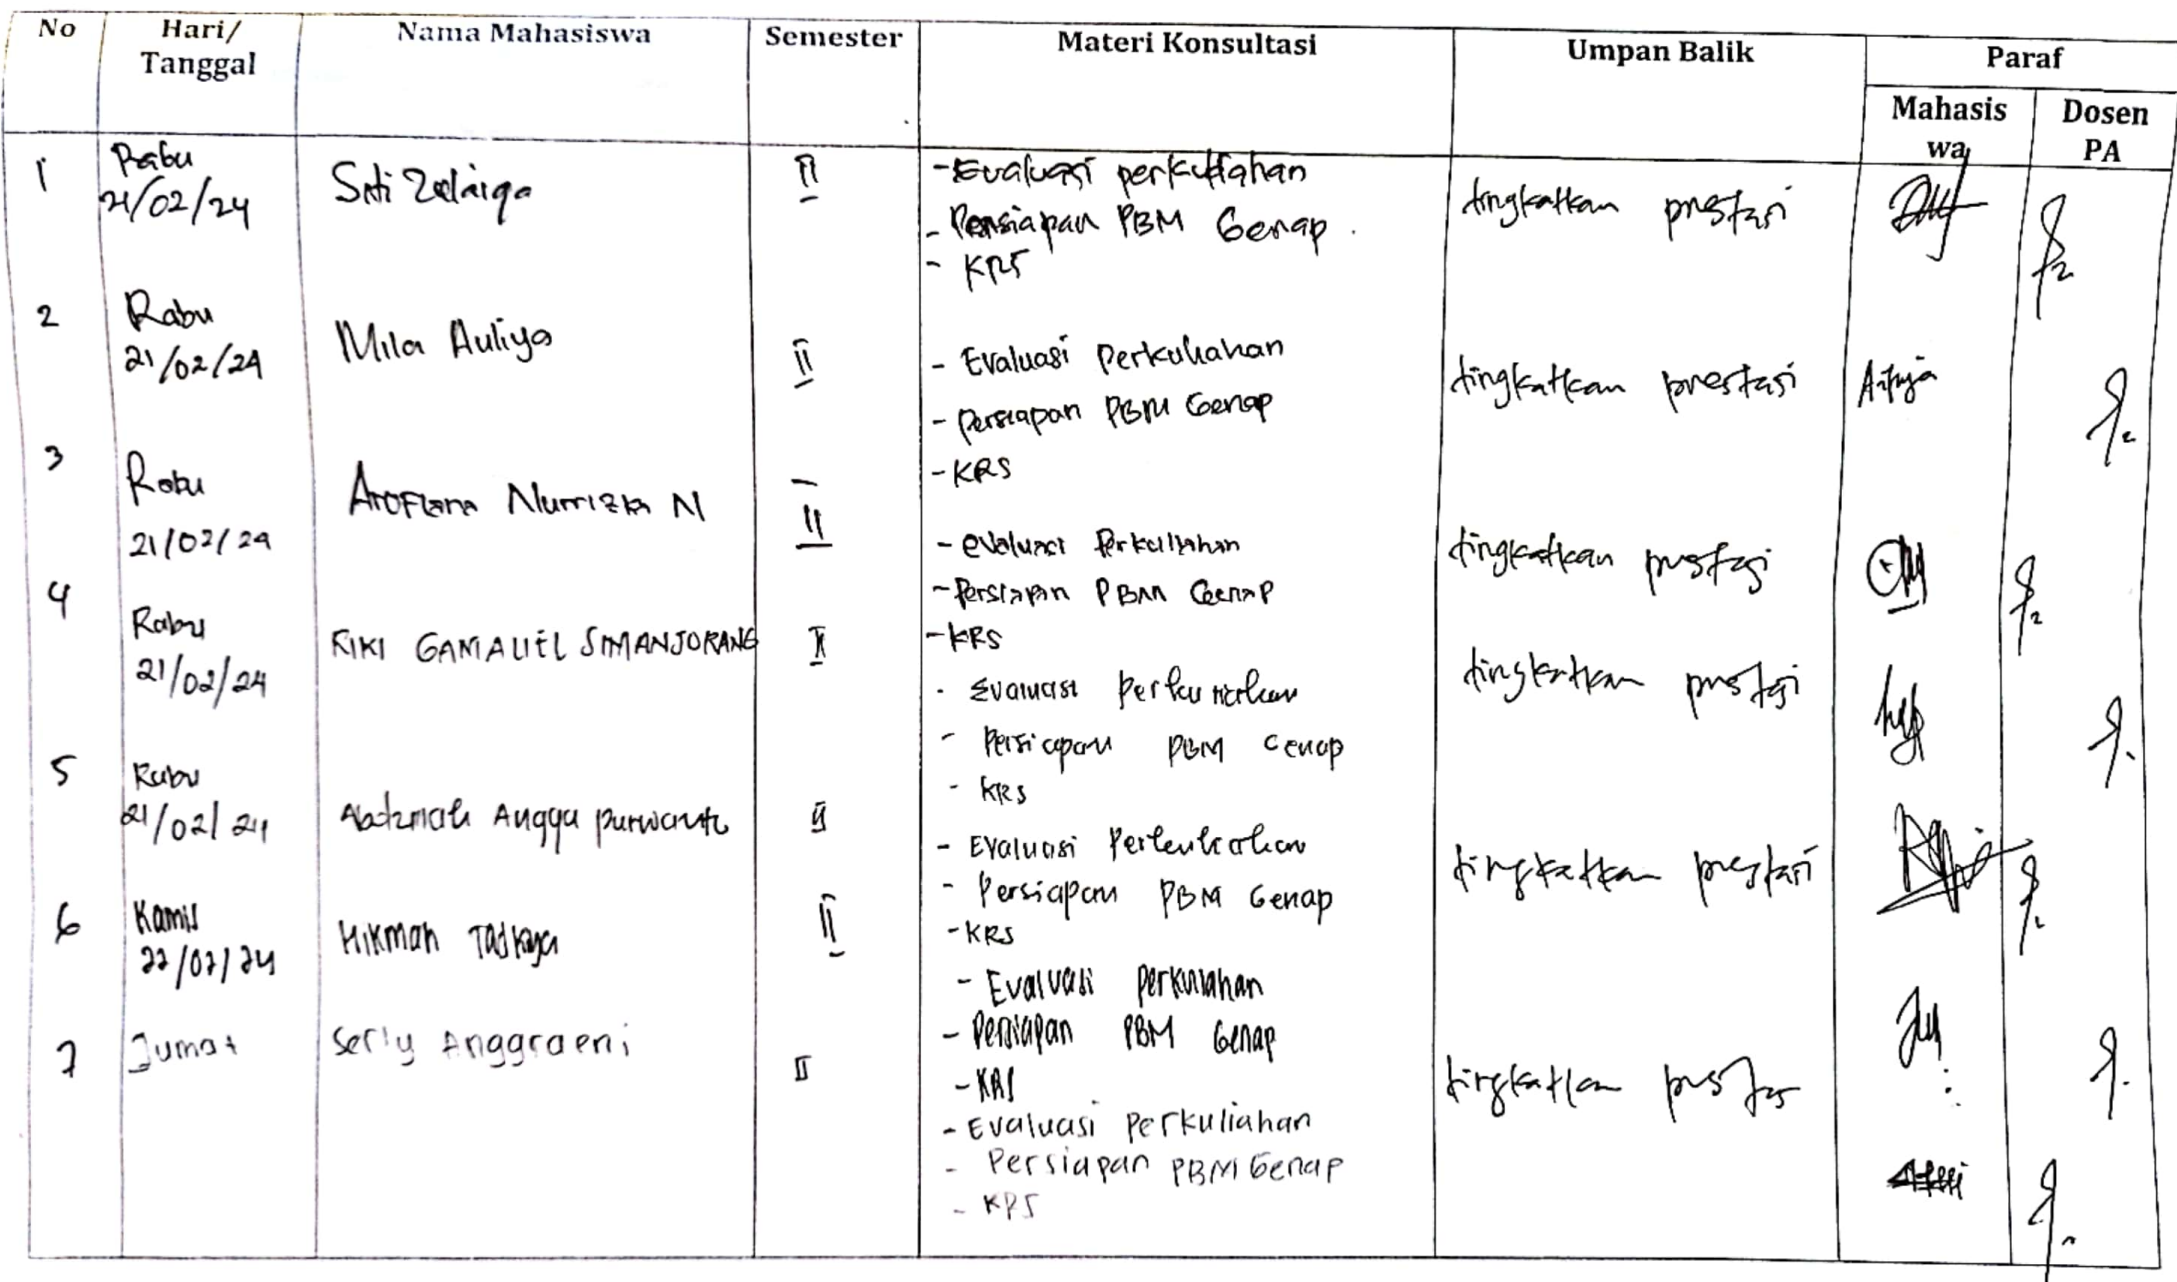 No
Hari/
Tanggal
Nama Mahasiswa
Semester
Materi Konsultasi
Umpan Balik
Paraf
Mahasis
wa
Dosen
PA
1
Rabu
21/02/24
Siti
II
- Evaluasi perkuliahan
- Persiapan PBM Genap
- KRS
tingkatkan prestasi
2
Rabu
21/02/24
Mila Auliya
II
- Evaluasi Perkuliahan
- Persiapan PBM Genap
- KRS
tingkatkan prestasi
3
Rabu
21/02/24
Nurrizka N
II
- evaluasi Perkuliahan
- Persiapan PBM Genap
- KRS
tingkatkan prestasi
4
Rabu
21/02/24
KIKI GAMALIEL SIMANJORANG
II
- Evaluasi Perkuliahan
- Persiapan PBM Genap
- KRS
tingkatkan prestasi
5
Rabu
21/02/24
Angga purwanto
II
- Evaluasi Perkuliahan
- Persiapan PBM Genap
- KRS
tingkatkan prestasi
6
Kamis
22/02/24
Hikmah
II
- Evaluasi perkuliahan
- Persiapan PBM Genap
- KRS
tingkatkan prestasi
7
Jumat
Serly Anggraeni
II
- Evaluasi Perkuliahan
- Persiapan PBM Genap
- KRS